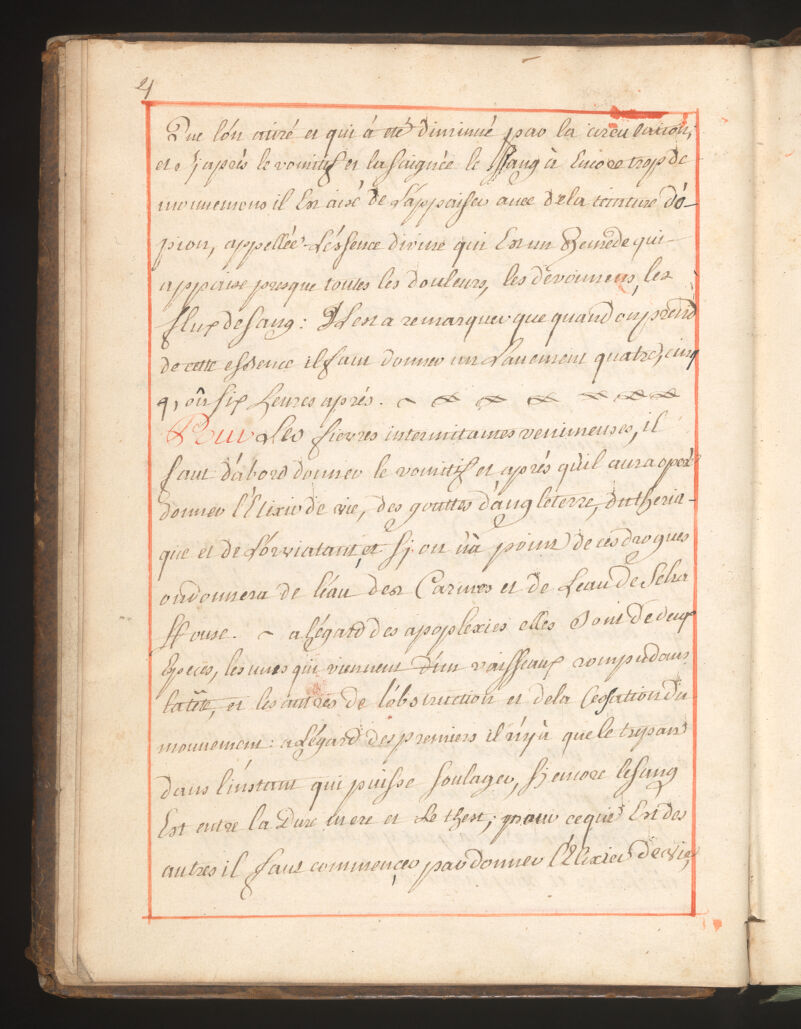 4
Que lón attiré et qui á eté diminué par la circulation;
et si aprés le vomitif et la saignée le ssang à Encore trop de
mouuemens il Est aisé de L'appaiser auec de la teinture d'ó-
pion, appellée L'éssence divine qui Est un Remede qui
appaise presque toutes les douleurs, les dévoiemens, les
flux de sang: Il est a remarquer que quand on prend
de cette essence il faut donner un Lauement quatre, cinq
oû six heures aprés.
Pour Les fievres intermitantes venimeuses, il
faut d'abord donner le vomitif et aprés qu'il aura operé
donner l'Elixir de vie, des gouttes d'angleterre, du theria-
que et de L'orviatant, et Sj on n'à point de ces drogues
on donnera de l'éau des Carmes et de Leau de Selia
ffouse. ~ a légard des apoplexies elles Sont de deux
Especes, les unes qui viennent d'un vaisseaux rompu dans
la tête, et les autres de l'obstruction et de la Cessation du
mouuement: a Légard des premiers il n'y à que le trepans
dans l'instant qui puisse soulager, Sj encore le sang
Est entre la Dure mere et Le thest; pour ce qui Est des
autres il faut commencer par donner l'Elixier de vie,